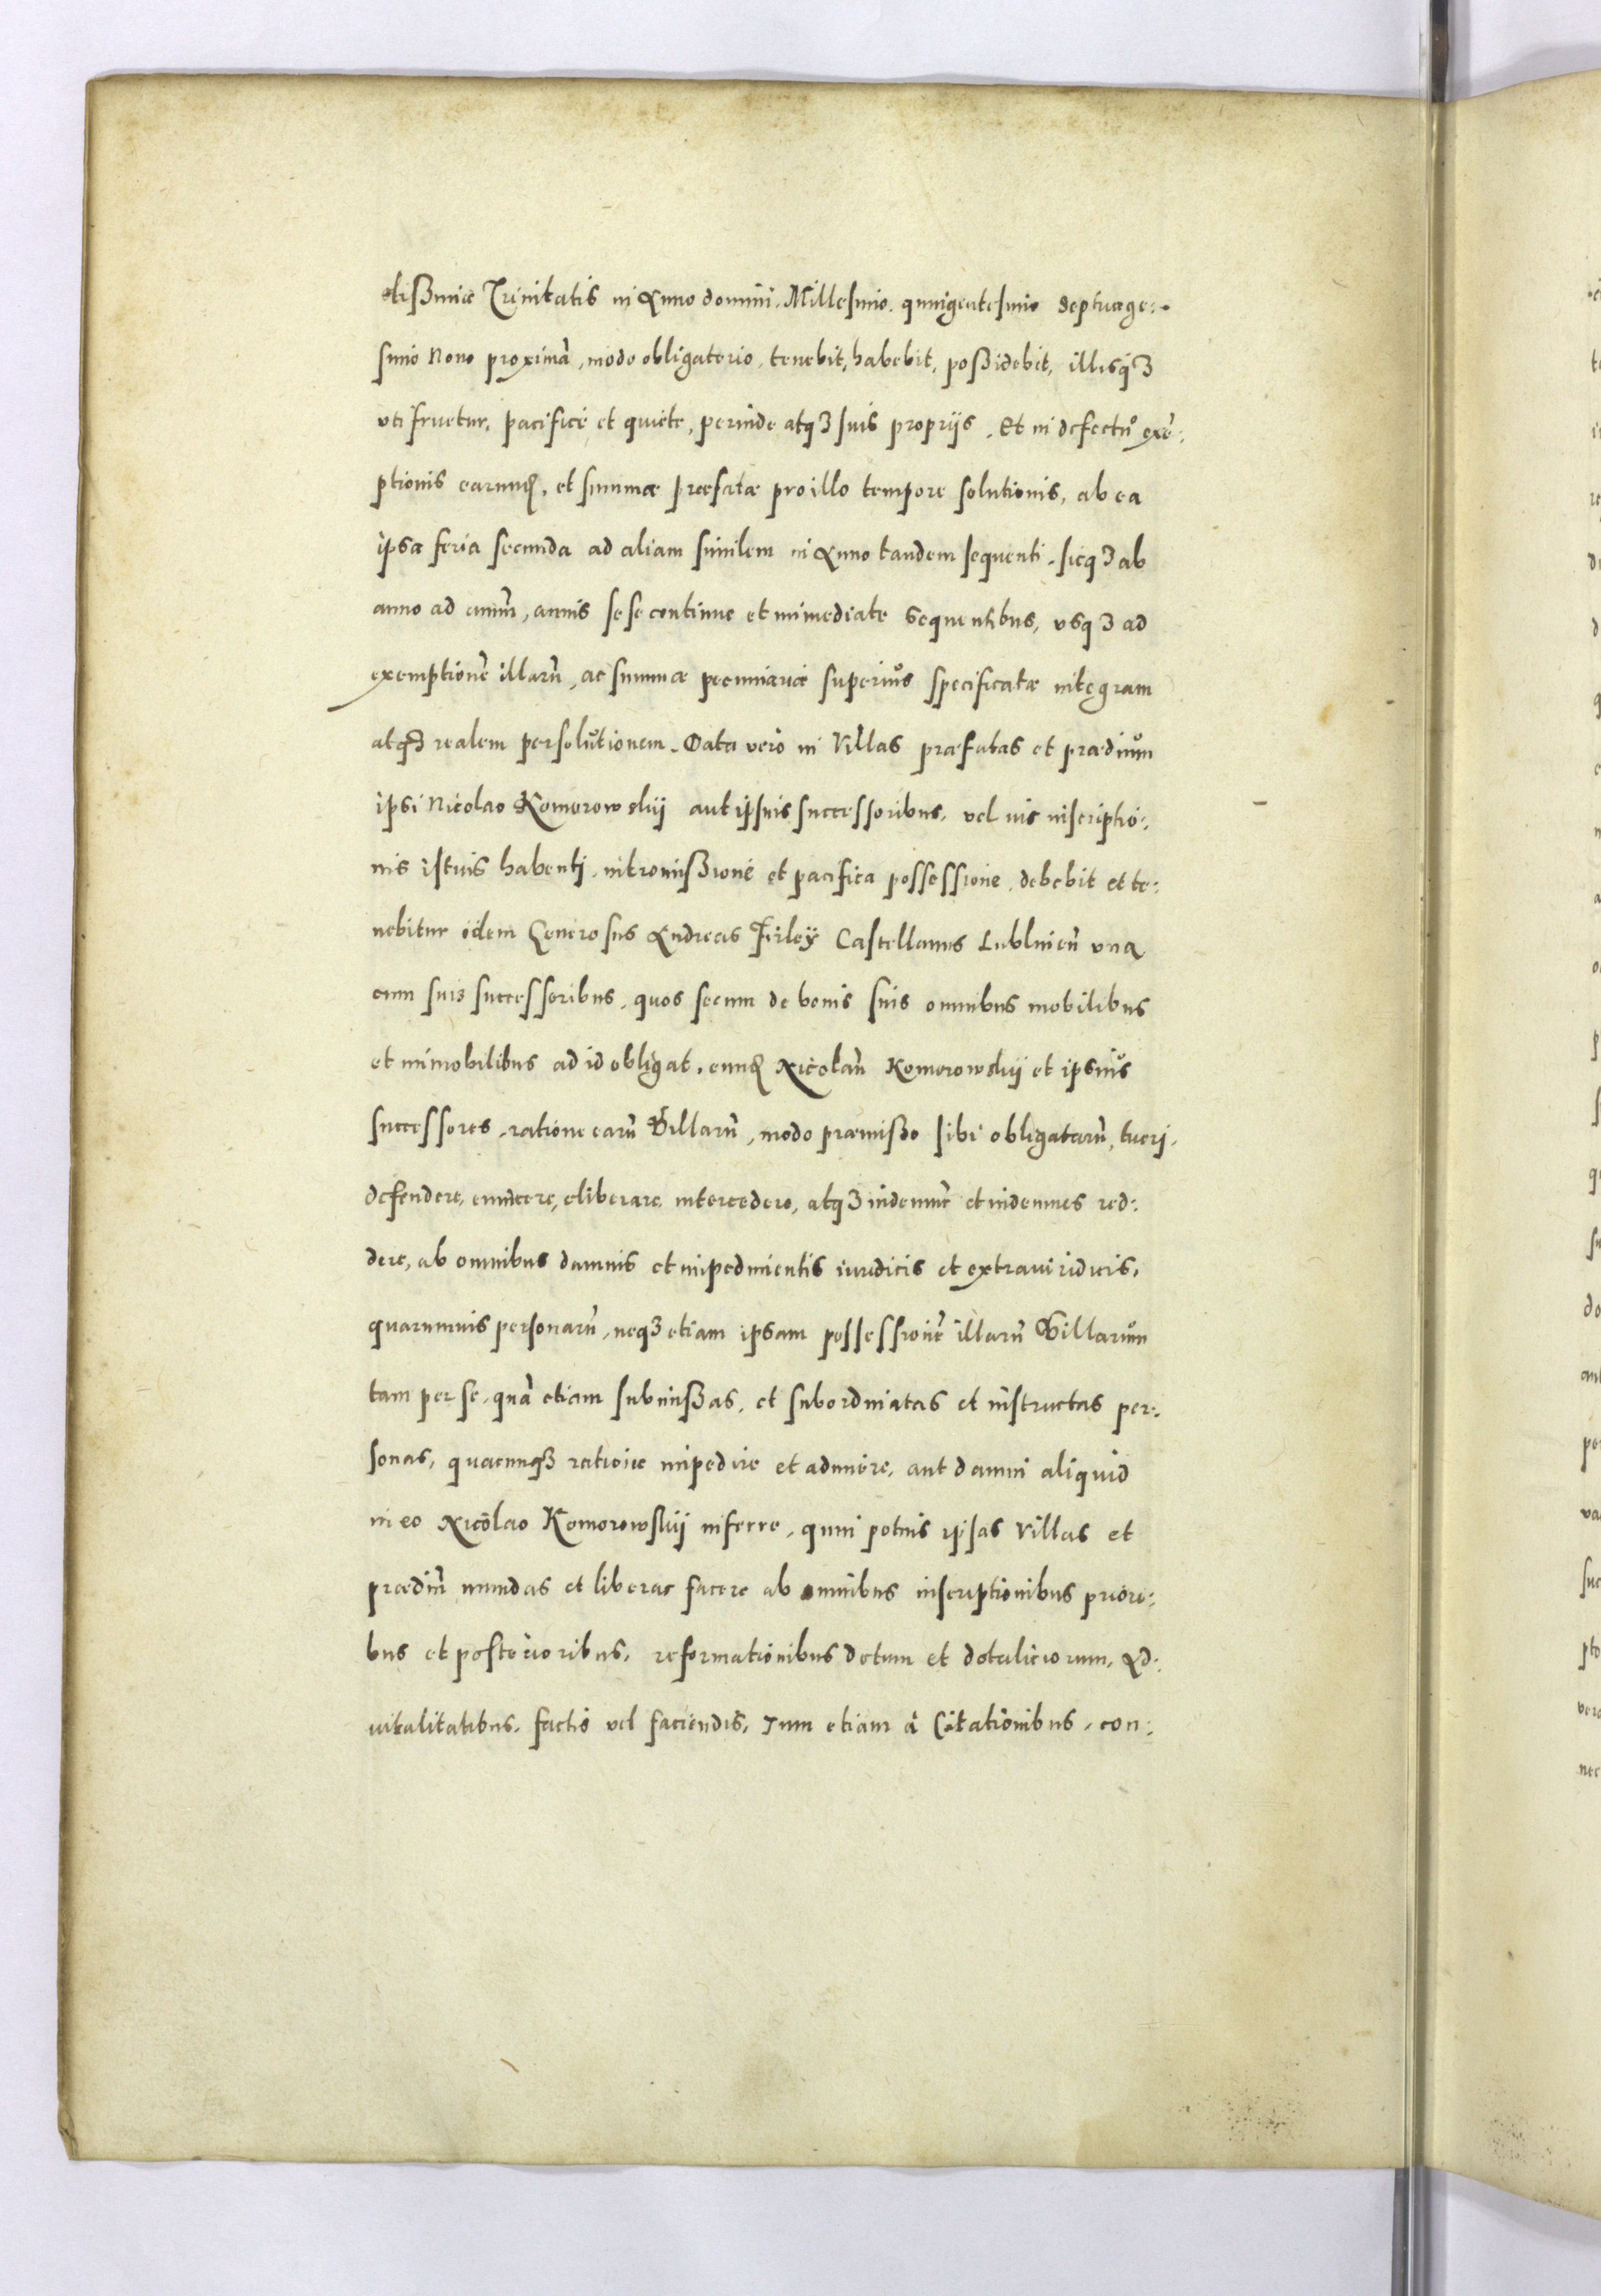 ctißimæ Trinitatis in Anno domini. Millesimo. quingentesimo Septuage:
simo Nono proximã, modo obligatorio, tenebit, habebit, poßidebit, illisq3
uti fruetur, pacificè et quiete, perinde atq3 suis proprijs. Et in defectũ exẽ:
ptionis earund, et summæ præfatæ pro illo tempore solutionis, ab ea
ipsa feria secunda ad aliam similem in Anno tandem sequenti, sicq3 ab
anno ad annũ, annis sese continue et immediate sequentibus, usq3 ad
exemptionẽ illarũ, ac summæ pecuniariæ superius specificatæ integram
atq3 realem persolutionem. Data verò in Villas præfatas et prædium
ipsi Nicolao Komorowskij aut ipsius successoribus, vel ius inscriptio:
nis istius habenti, intromißione et pacifica possessione, debebit et te:
nebitur idem Generosus Andreas Firley Castellanus Lublineñ una
cum suis successoribus, quos secum de bonis suis omnibus mobilibus
et immobilibus ad id obligat, eund Nicolaũ Komorowskij et ipsius
successores, ratione earũ Villarũ, modo præmißo sibi obligatarũ, tueri,
defendere, evincere, eliberare, intercedere, atq3 indemnẽ et indemnes red:
dere, ab omnibus damnis et impedimentis iuridicis et extraiuridicis,
quarumuis personarũ, neq3 etiam ipsam possessionẽ illarũ Villarum
tam per se, quã etiam submißas, et subordinatas et instructas per:
sonas, quacunq3 ratione impedire et adimere, aut damni aliquid
in eo Nicolao Komorowskij inferre, quin potius ipsas Villas et
prædiũ mundas et liberas facere ab omnibus inscriptionibus priori:
bus et posterioribus, reformationibus dotum et dotaliciorum, Ad:
vitalitatibus, factis vel faciendis, Tum etiam à Citationibus, con: